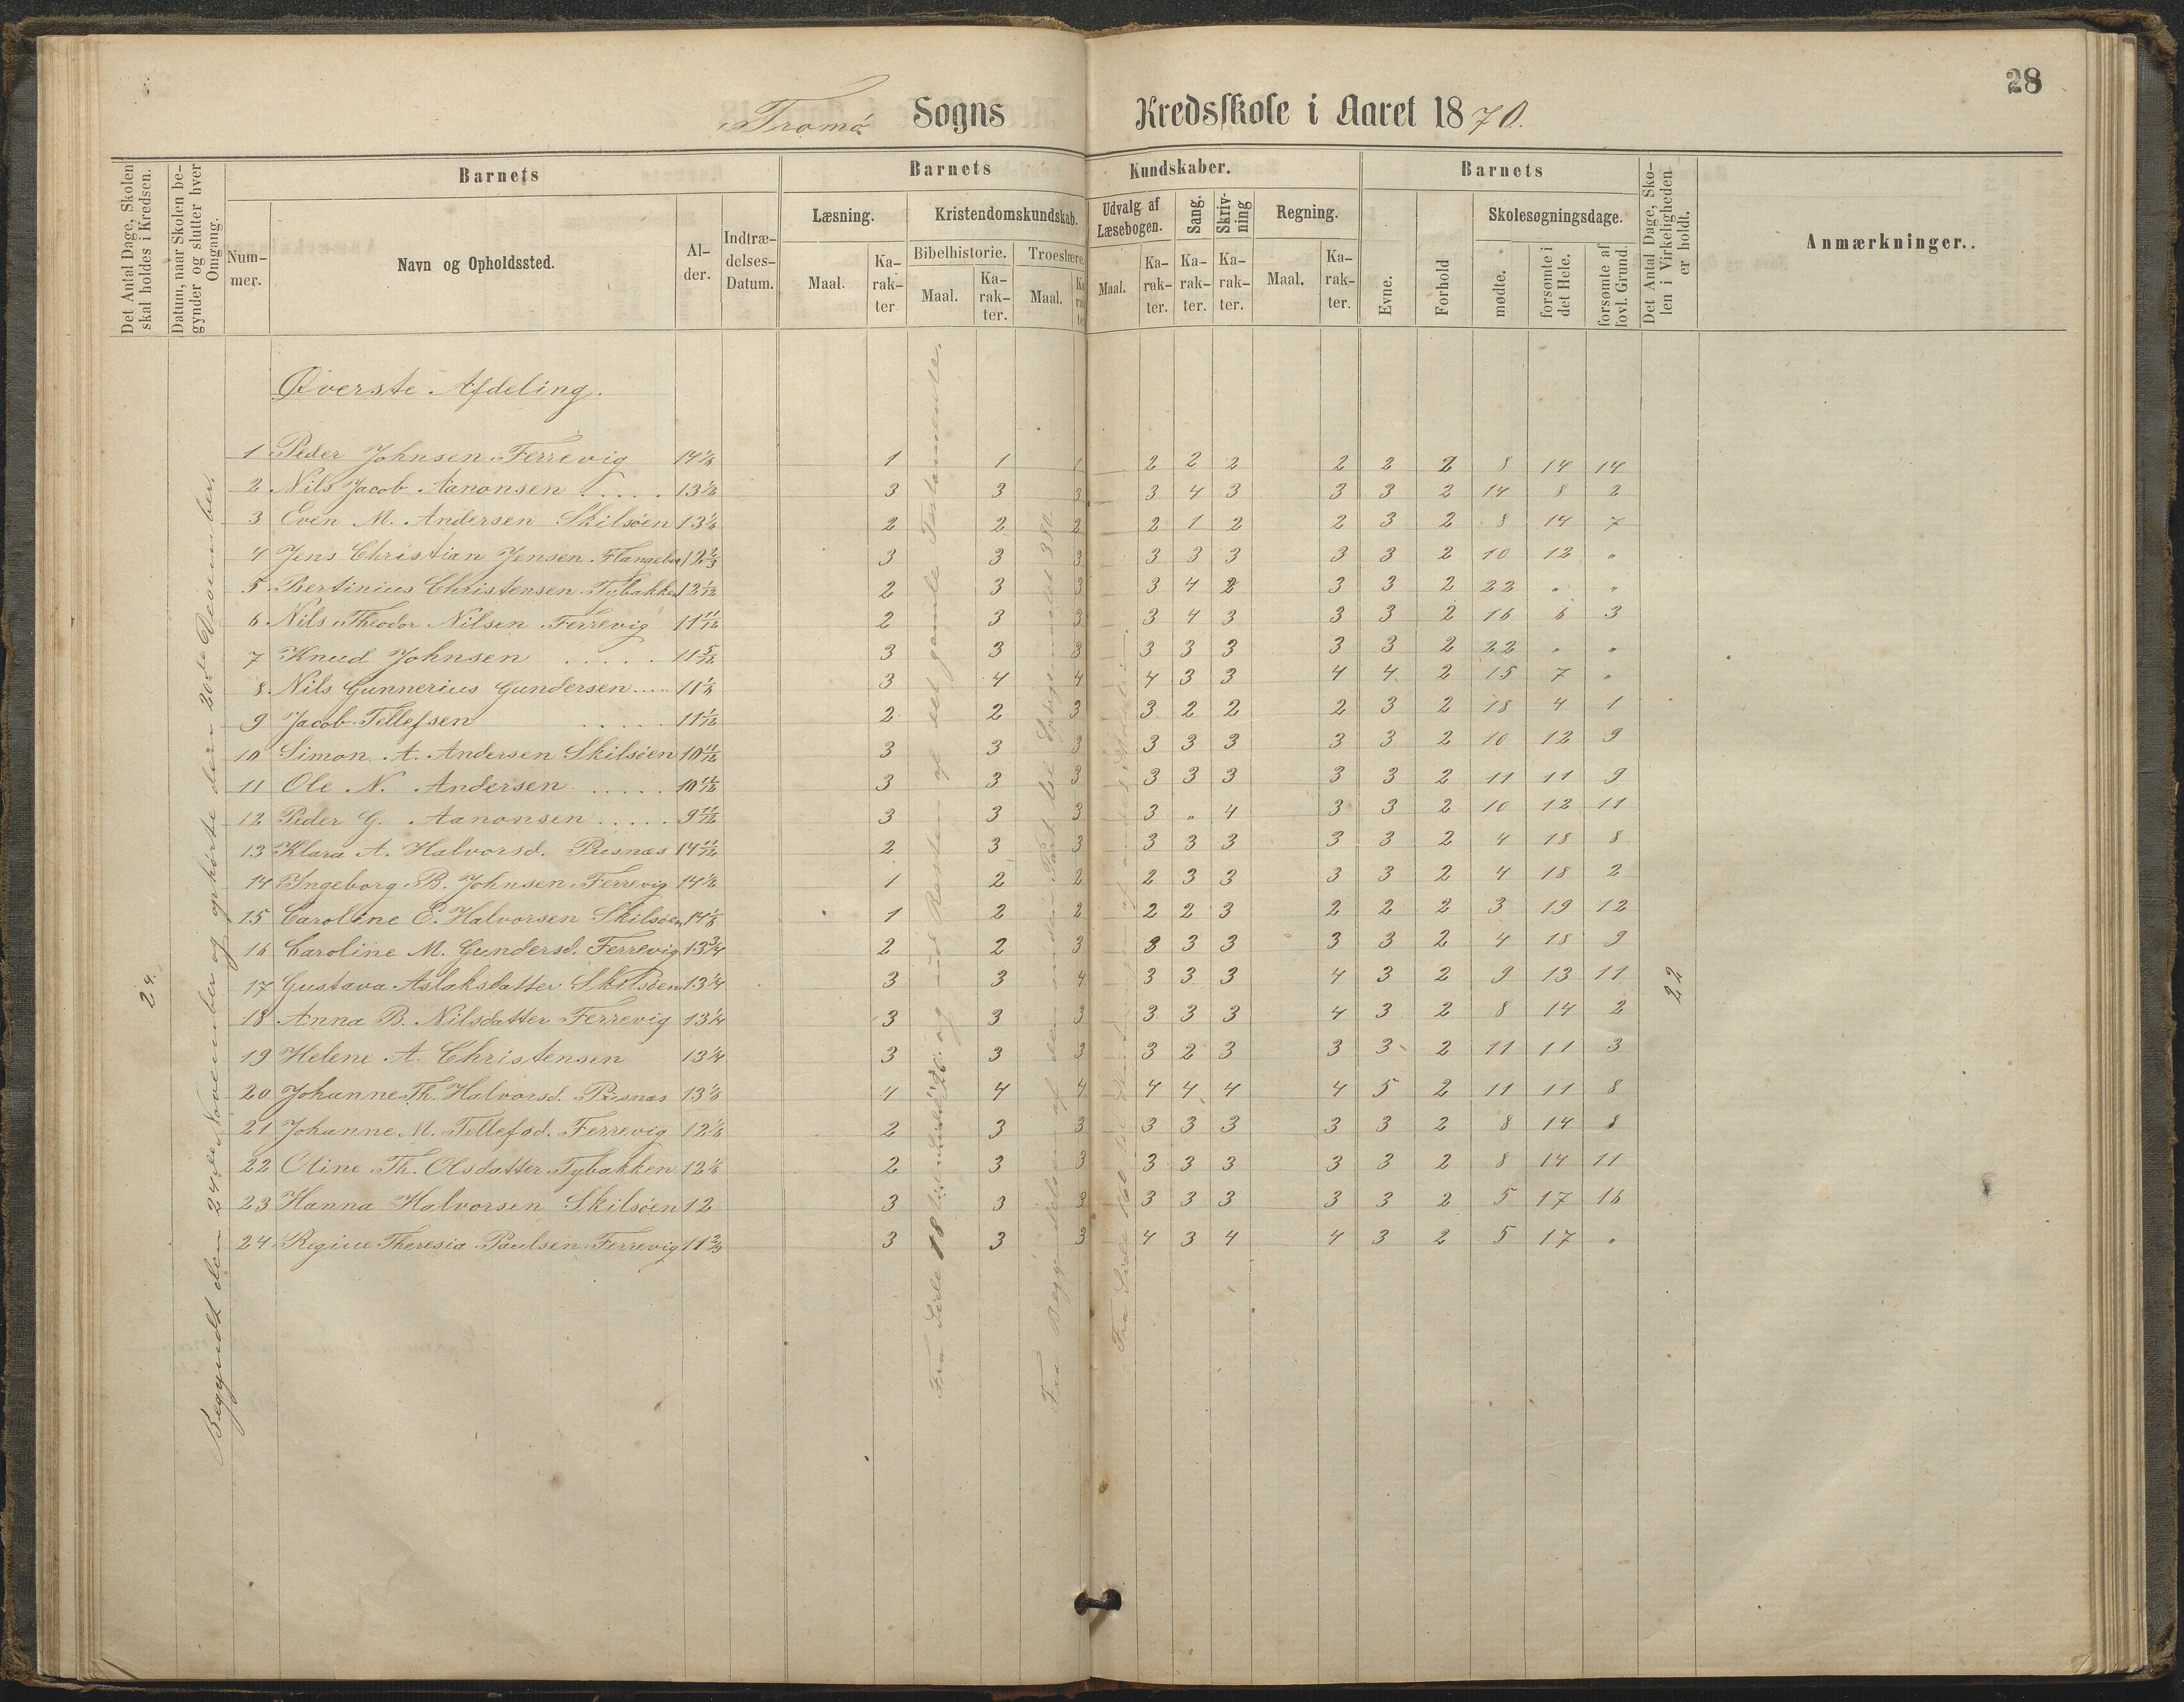 28
Tromø Sogns Kredsskole i Aaret 1870.
Det Antal Dage, Skolen skal holdes i Kredsen.
Datum, naar Skolen begynder og slutter hver Omgang.
Barnets
Barnets Kundskaber.
Barnets
Det Antal Dage, Skolen i Virkeligheden er holdt.
Anmærkninger..
Nummer.
Navn og Opholdssted.
Alder.
Indtrædelses-Datum.
Læsning.
Kristendomskundskab.
Udvalg af Læsebogen.
Sang.
Skrivning
Regning.
Evne.
Forhold
Skolesøgningsdage.
Bibelhistorie.
Troeslære.
Maal. Karakter Maal. Karakter. Maal. Karakter Maal. Karakter. Karakter. Karakter. Maal. Karakter.
mødte. forsømte i det Hele. forsømte af lovl. Grund.
Øverste Afdeling.
1 Peder Johnsen Ferrevig 14 1/3 1 1 1 2 2 2 2 2 2 8 14 14
2 Nils Jacob Aanonsen ..... 13 1/2 3 3 3 3 4 3 3 3 2 14 8 2
3 Even M. Andersen Skilsöen 13 1/3 2 2 2 2 1 2 2 3 2 8 14 7
4 Jens Christian Jensen 12 2/3 3 3 3 3 3 3 3 3 2 10 12 "
5 Bertinius Christensen Tybakken 12 1/12 2 3 3 3 4 2 3 3 2 22 " "
6 Nils Theodor Nilsen Ferrevig 11 11/12 2 3 3 3 4 3 3 3 2 16 6 3
7 Knud Johnsen ..... 11 5/12 3 3 3 3 3 3 3 3 2 22 " "
8 Nils Gunnerius Gundersen .... 11 1/3 3 4 4 4 3 3 4 4 2 15 7 "
9 Jacob Tellefsen ..... 11 1/12 2 2 3 3 2 2 2 3 2 18 4 1
10 Simon A. Andersen Skilsöen 10 11/12 3 3 3 3 3 3 3 3 2 10 12 9
11 Ole N. Andersen ..... 10 11/12 3 3 3 3 3 3 3 3 2 11 11 9
12 Peder G. Aanonsen ..... 9 11/12 3 3 3 3 " 4 3 3 2 10 12 11
13 Klara A. Halvorsd. Pusnæs 14 11/12 2 3 3 3 3 3 3 3 2 4 18 8
14 Ingeborg B. Johnsen Ferrevig 14 1/2 1 2 2 2 3 3 3 3 2 4 18 2
15 Caroline E. Halvorsen Skilsöen 14 1/3 1 2 2 2 2 3 2 2 2 3 19 12
16 Caroline M. Gundersd. Ferrevig 13 3/4 2 2 3 3 3 3 3 3 2 4 18 9
17 Gustava Aslaksdatter Skilsöen 13 1/4 3 3 4 3 3 3 4 3 2 9 13 11
18 Anna B. Nilsdatter Ferrevig 13 1/4 3 3 3 3 3 3 4 3 2 8 14 2
19 Helene A. Christensen 13 1/4 3 3 3 3 2 3 3 3 2 11 11 3
20 Johanne Th. Halvorsd. Pusnæs 13 1/3 4 4 4 4 4 4 4 5 2 11 11 8
21 Johanne M. Tellefsd. Ferrevig 12 1/3 2 3 3 3 3 3 3 3 2 8 14 8
22 Oline Th. Olsdatter Tybakken 12 1/3 2 3 3 3 3 3 3 3 2 8 14 11
23 Hanna Halvorsen Skilsöen 12 3 3 3 3 3 3 3 3 2 5 17 16
24 Regine Theresia Paulsen Ferrevig 11 2/3 3 3 3 4 3 4 4 3 2 5 17 "
24.
Begyndt den 24de November og ophørte den 20de December.
Fra Side 18 til og med Resten af det gamle Testamente.
Fra Begyndelsen af den anden Part til Spørgsmaalet 380.
Fra Side 160 til
22